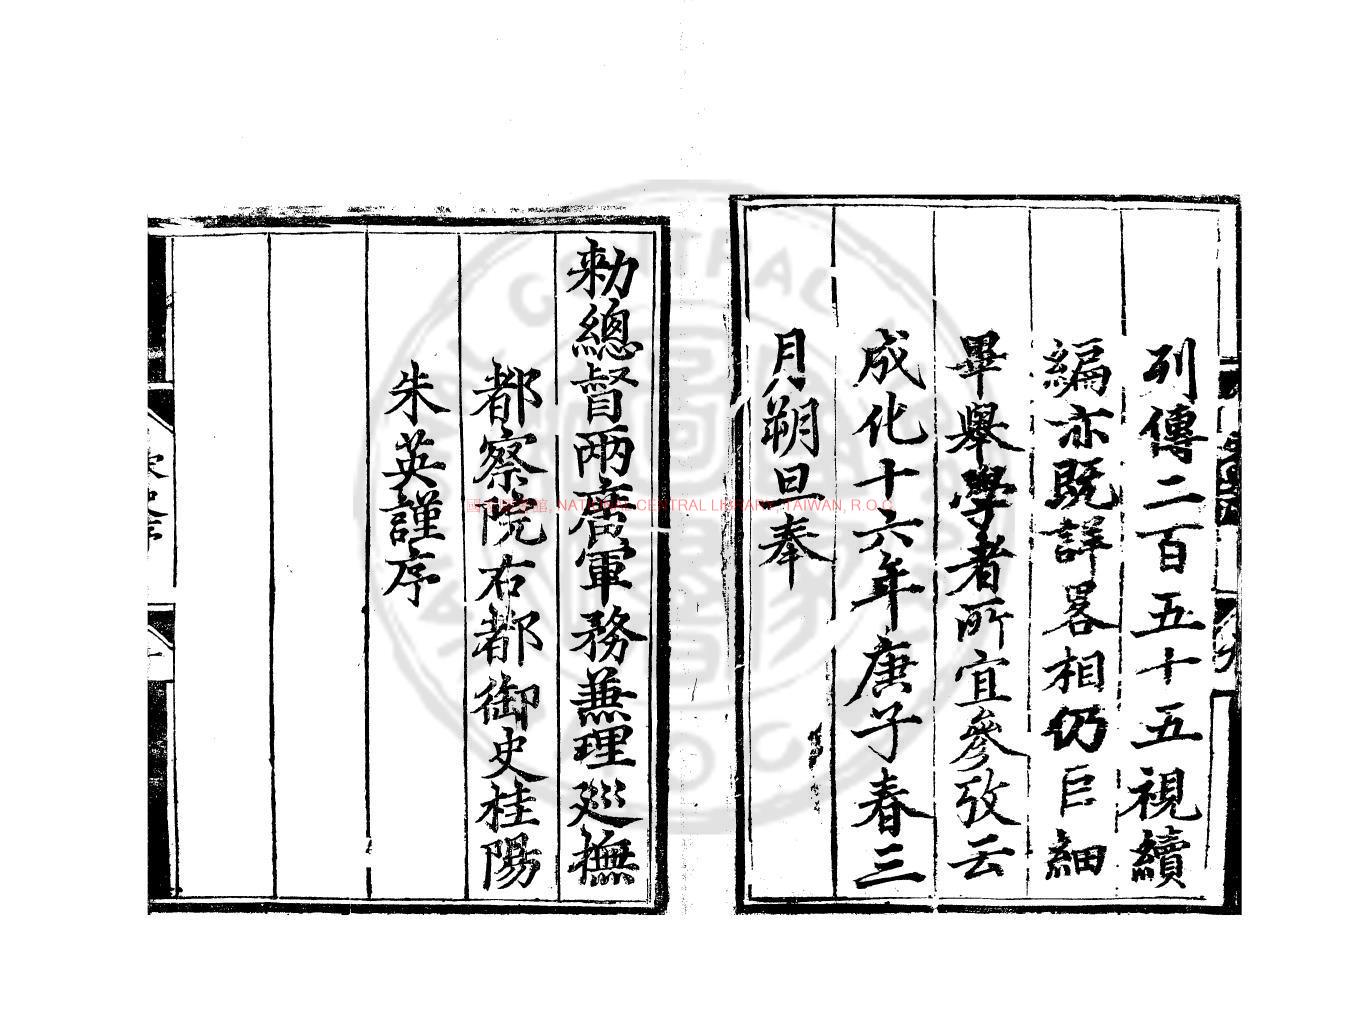 列傳二百五十五視續
編亦既詳畧相仍巨細
畢舉學者所宜參攷云
成化十六年庚子春三
月朔旦奉
勑總督兩廣軍務兼理廵撫
都察院右都御史桂陽
朱英謹序
國家圖書館, NATIONAL CENTRAL LIBRARY, TAIWAN, R.O.C